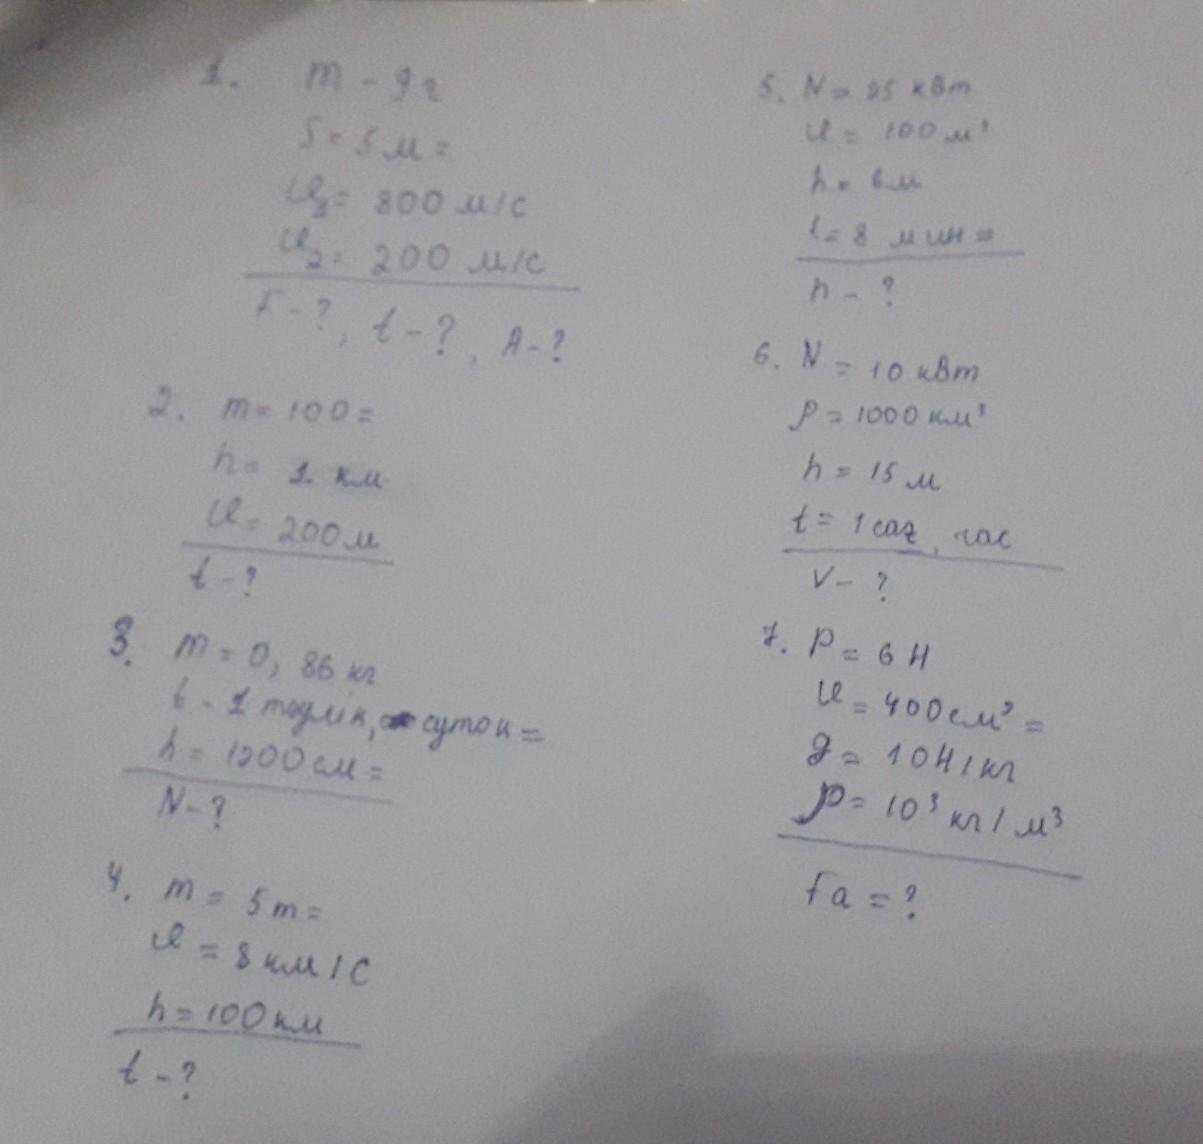 1. m - 9г
S = 5 м =
υ₁ = 800 м/с
υ₂ = 200 м/с
F - ?, t - ?, A - ?
2. m = 100 =
h = 1 км
υ = 200 м
t - ?
3. m = 0, 86 кг
t - 1 суток =
h = 1200 см =
N - ?
4. m = 5 т =
υ = 8 км / с
h = 100 км
t - ?
5. N = 25 кВт
υ = 100 м³
h = 6 м
t = 8 мин =
n - ?
6. N = 10 кВт
ρ = 1000 км³
h = 15 м
t = 1 сағ, час
V - ?
7. P = 6 Н
υ = 400 см³ =
g = 10 Н / кг
ρ = 10³ кг / м³
Fa = ?